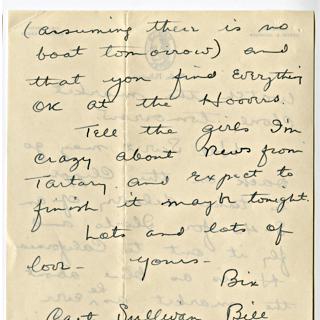 (assuming there is no
boat tomorrow) and
that you find everything
OK at the Hoovris.
Tell the girls I'm
crazy about News from
Tartary and expect to
finish it maybe tonight.
Lots and lots of
love - yours -
Bix
Capt Sullivan Bill